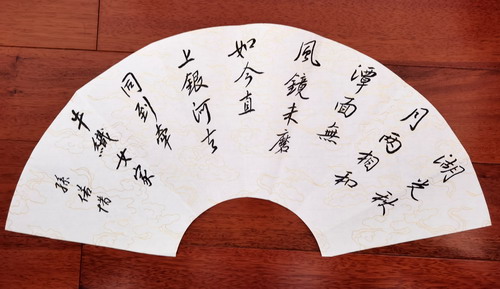 湖光秋
月兩相和
潭面無
風鏡未磨
如今直
上銀河去
同到牽
牛織女家
孫惜